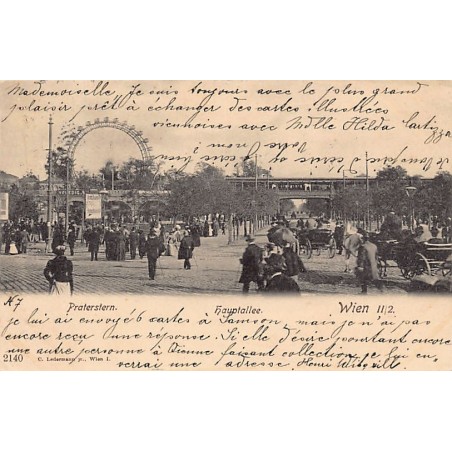 Mademoiselle, Je suis toujours avec le plus grand
plaisir prêt à échanger des cartes illustrées
viennoises avec Mdlle Hilda
No 7
Praterstern. Hauptallee. Wien II/2.
Je lui ai envoyé 6 cartes à Samson, mais je n'ai pas
encore reçu une réponse. Si elle désire pourtant encore
une autre personne à Vienne faisant collection je lui en-
verrai une adresse. Henri
2140 C. Ledermann jr., Wien I.